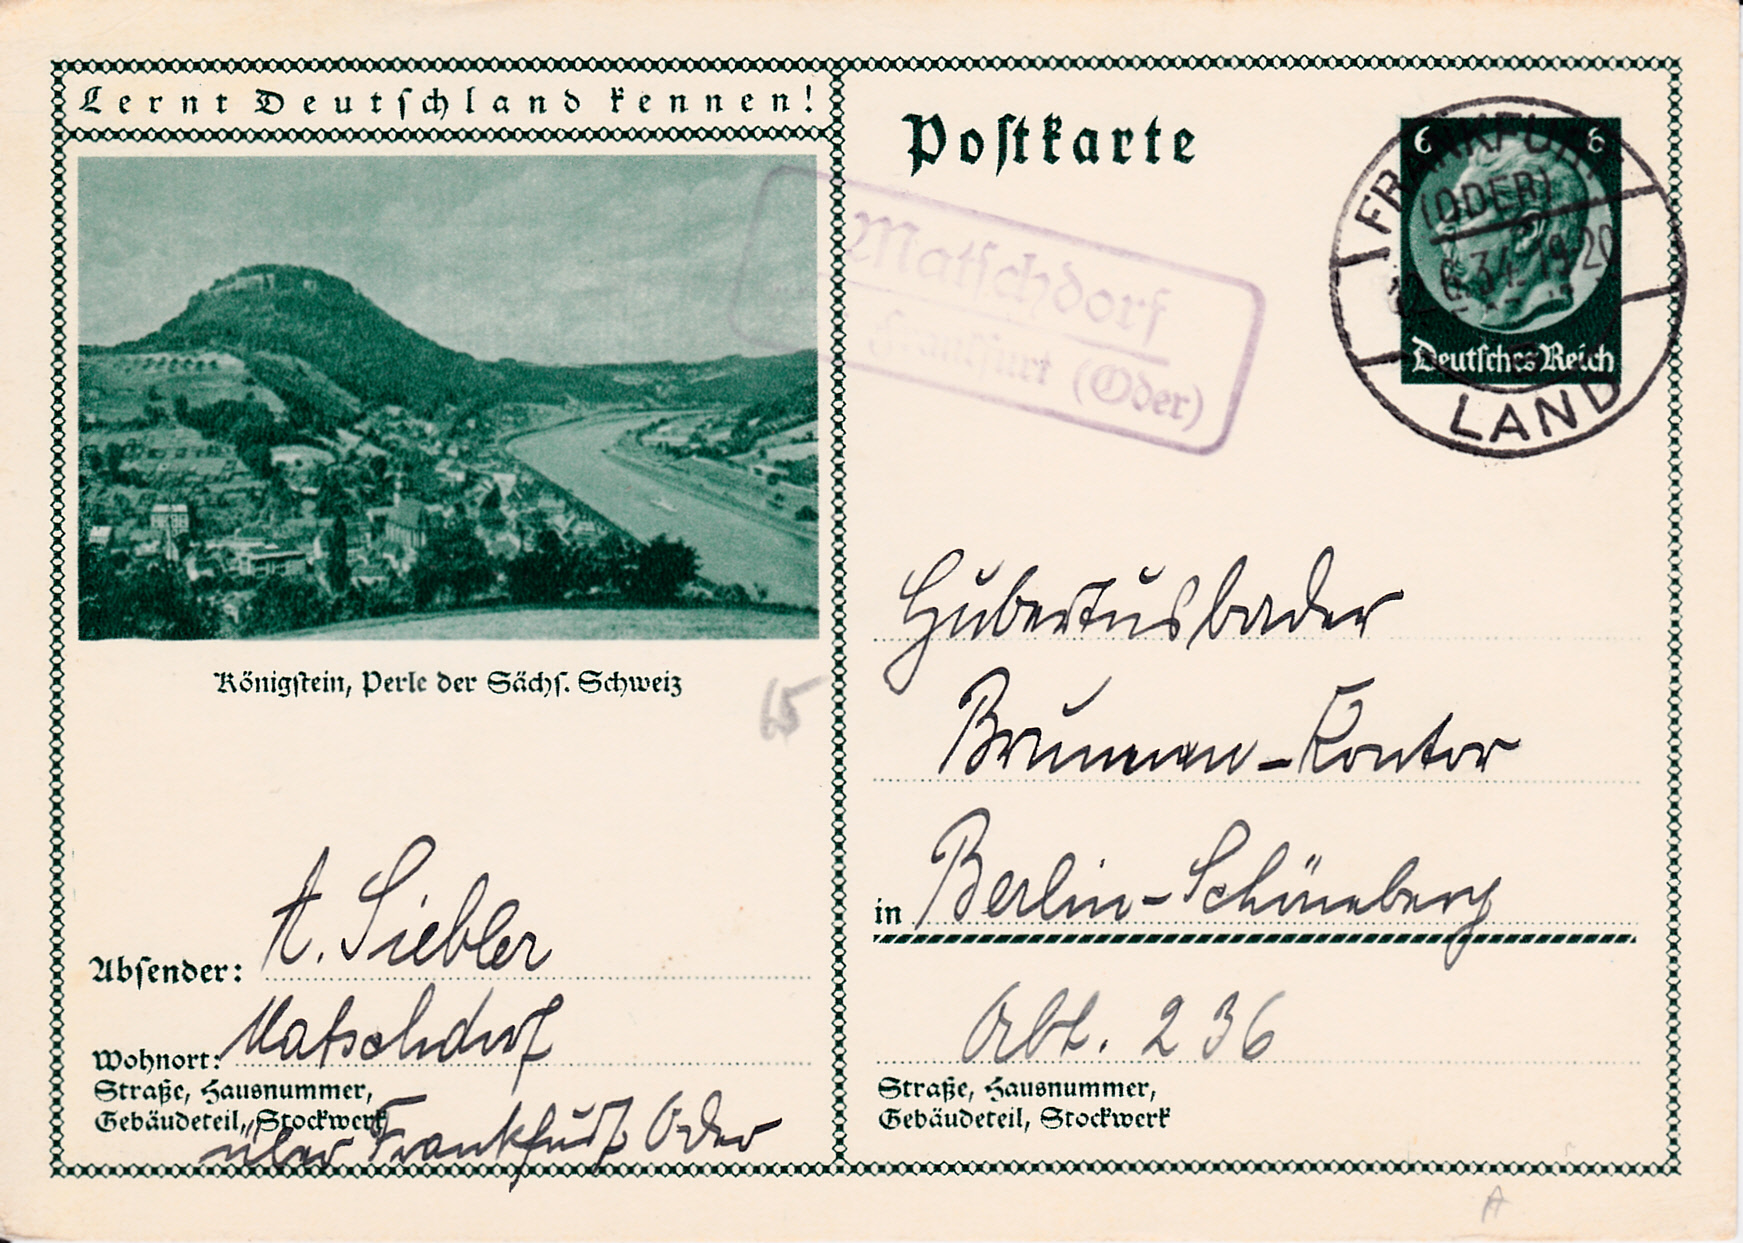 Lernt Deutschland kennen!
Königstein, Perle der Sächs. Schweiz
65
Absender: A. Siebler
Wohnort: Matschdorf
Straße, Hausnummer,
Gebäudeteil, Stockwerk
über Frankfurt Oder
Postkarte
Matschdorf
Frankfurt (Oder)
6 6
Deutsches Reich
FRANKFURT
(ODER)
6.34.19-20
LAND
Hubertusbader
Brunnen-Kontor
in Berlin-Schöneberg
Abt. 236
Straße, Hausnummer,
Gebäudeteil, Stockwerk
A